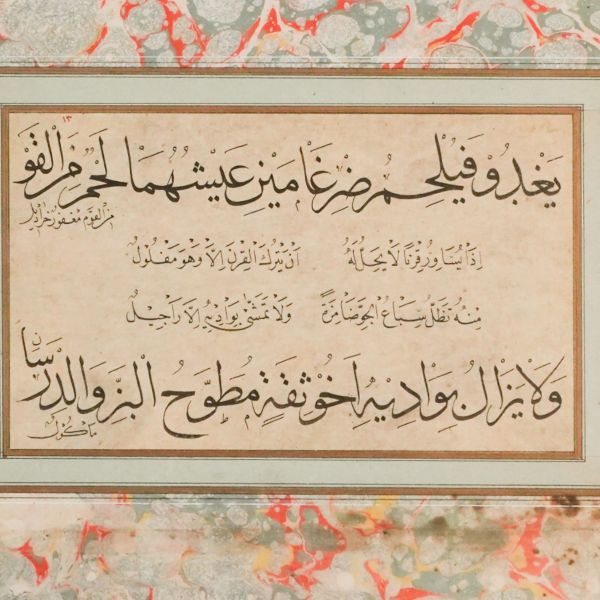 ١٣
يَغْدُو فَيُلْحِمُ ضِرْغَامَيْنِ عَيْشُهُمَا لَحْمٌ مِنَ الْقَوْ
مِنَ الْقَوْمِ مَغْفُورٌ خَرَادِيلُ
اِذَا يُسَاوِرُ قِرْنًا لَا يَحِلُّ لَهُ اَنْ يَتْرُكَ الْقِرْنَ اِلَّا وَهُوَ مَفْلُولُ
مِنْهُ تَظَلُّ سِبَاعُ الْجَوِّ ضَامِزَةً وَلَا تَمَشَّى بِوَادِيهِ الْاَرَاجِيلُ
وَلَا يَزَالُ بِوَادِيهِ اَخُو ثِقَةٍ مُطَوَّحُ الْبَزِّ وَالدِّرْسَانِ
مَأْكُولُ